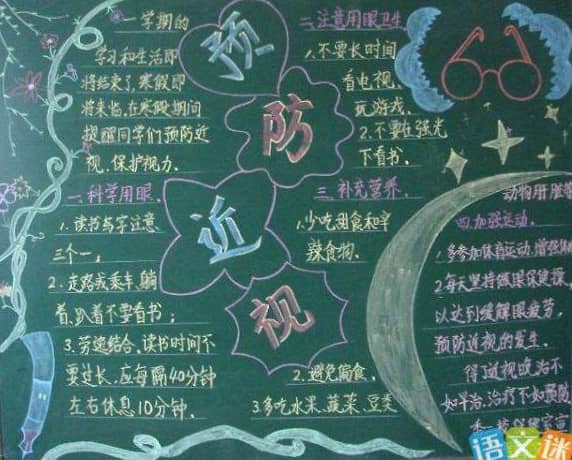 预防近视
一学期的
学习和生活即
将结束了,寒假即
将来临,在寒假期间
提醒同学们预防近
视、保护视力。
一、科学用眼、
1、读书与字注意
三个一、
2、走路或乘车、躺
着、趴着不要看书;
3、劳逸结合、读书时间不
要过长、应每隔40分钟
左右休息10分钟、
二、注意用眼卫生
1、不要长时间
看电视、
玩游戏、
2、不要在强光
下看书、
三、补充营养、
1、少吃甜食和辛
辣食物、
2、避免偏食、
3、多吃水果、蔬菜、豆类
动物肝脏等
四、加强运动、
1、多参加体育运动,增强
2、每天坚持做眼保健操,
以达到缓解眼疲劳,
预防近视的发生、
得了近视晚治不
如早治、治疗不如预防
语文迷